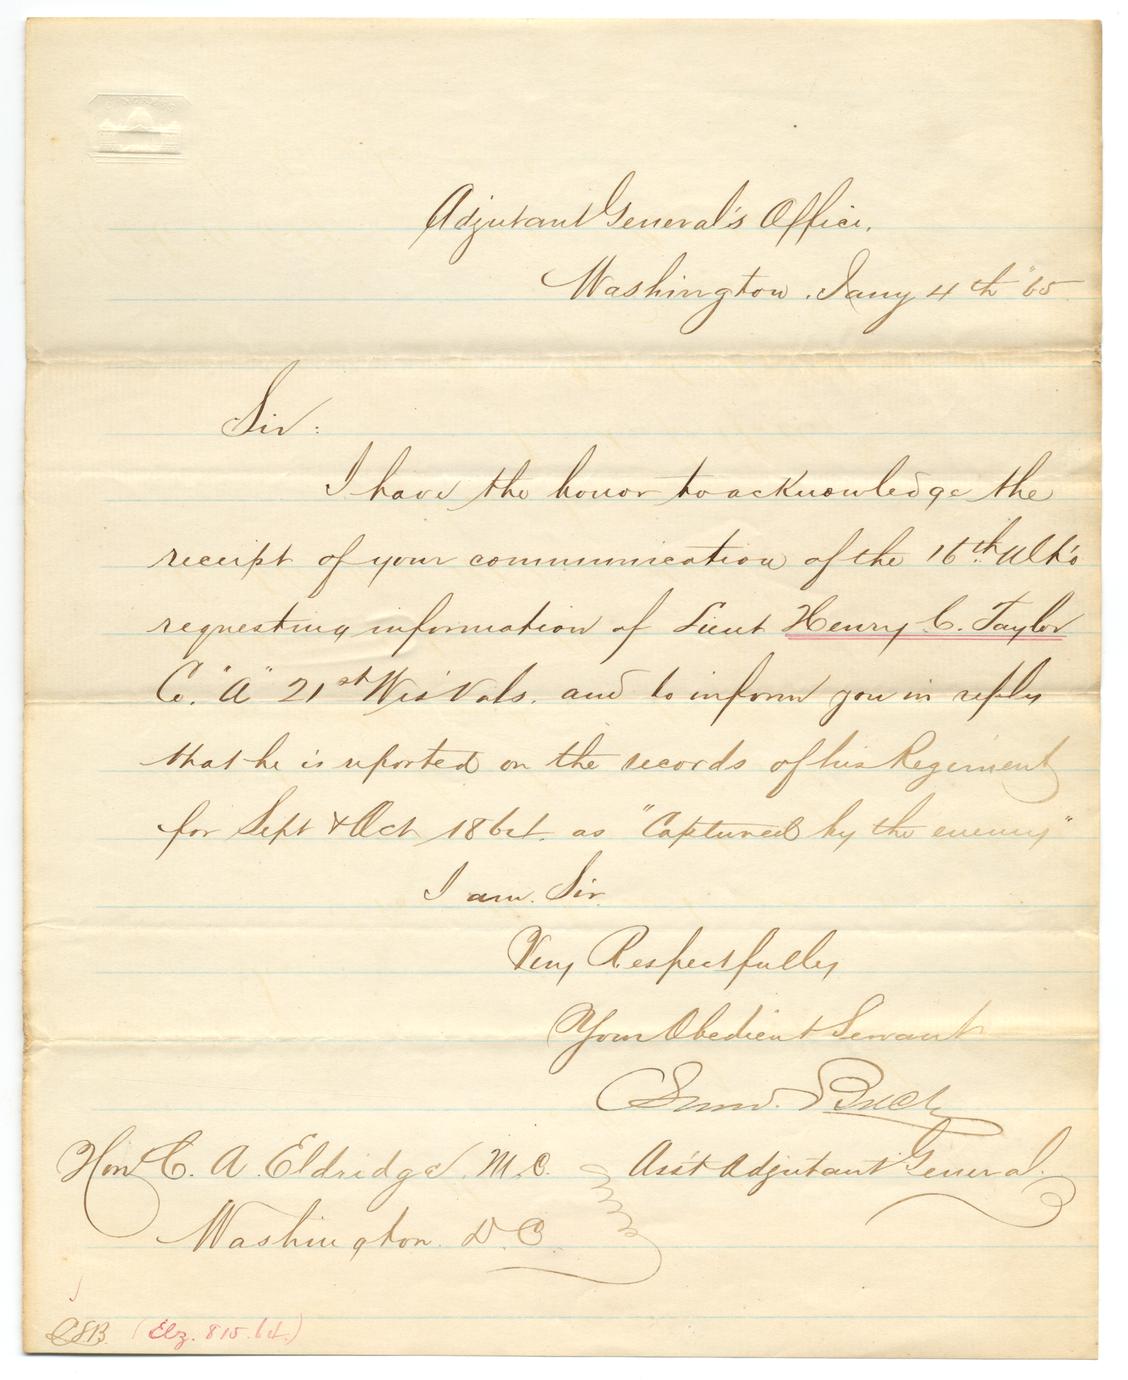 Adjutant General's Office,
Washington, Jany 4th "65
Sir:
I have the honor to acknowledge the
receipt of your communication of the 16th Ult'o
requesting information of Lieut Henry C. Taylor
Co. "A" 21st Wis Vols. and to inform you in reply
that he is reported on the records of his Regiment
for Sept & Oct 1864. as "Captured by the enemy"
I am. Sir.
Very Respectfully
Your Obedient Servant
Saml. Breck
Ass't Adjutant General.
Hon C. A. Eldridge. M.C.
Washington. D.C.
(Elz. 815. 64.)